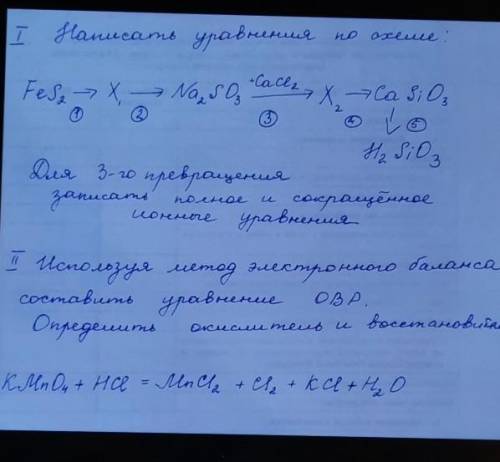 I Написать уравнения по схеме:
FeS₂ → X₁ → Na₂SO₃ +CaCl₂ → X₂ → CaSiO₃
① ② ③ ④ ↓ ⑤
H₂SiO₃
Для 3-го превращения
записать полное и сокращённое
ионные уравнения
II Используя метод электронного баланса
составить уравнение ОВР.
Определить окислитель и восстановите
KMnO₄ + HCl = MnCl₂ + Cl₂ + KCl + H₂O